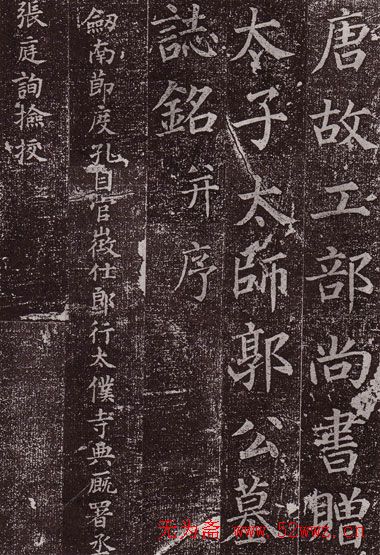 唐故工部尚書贈
太子太師郭公墓
誌銘并序
劔南節度孔目官徵仕郎行太僕寺典厩署丞
張庭詢撿挍
无为斋 www.52wwz.cn